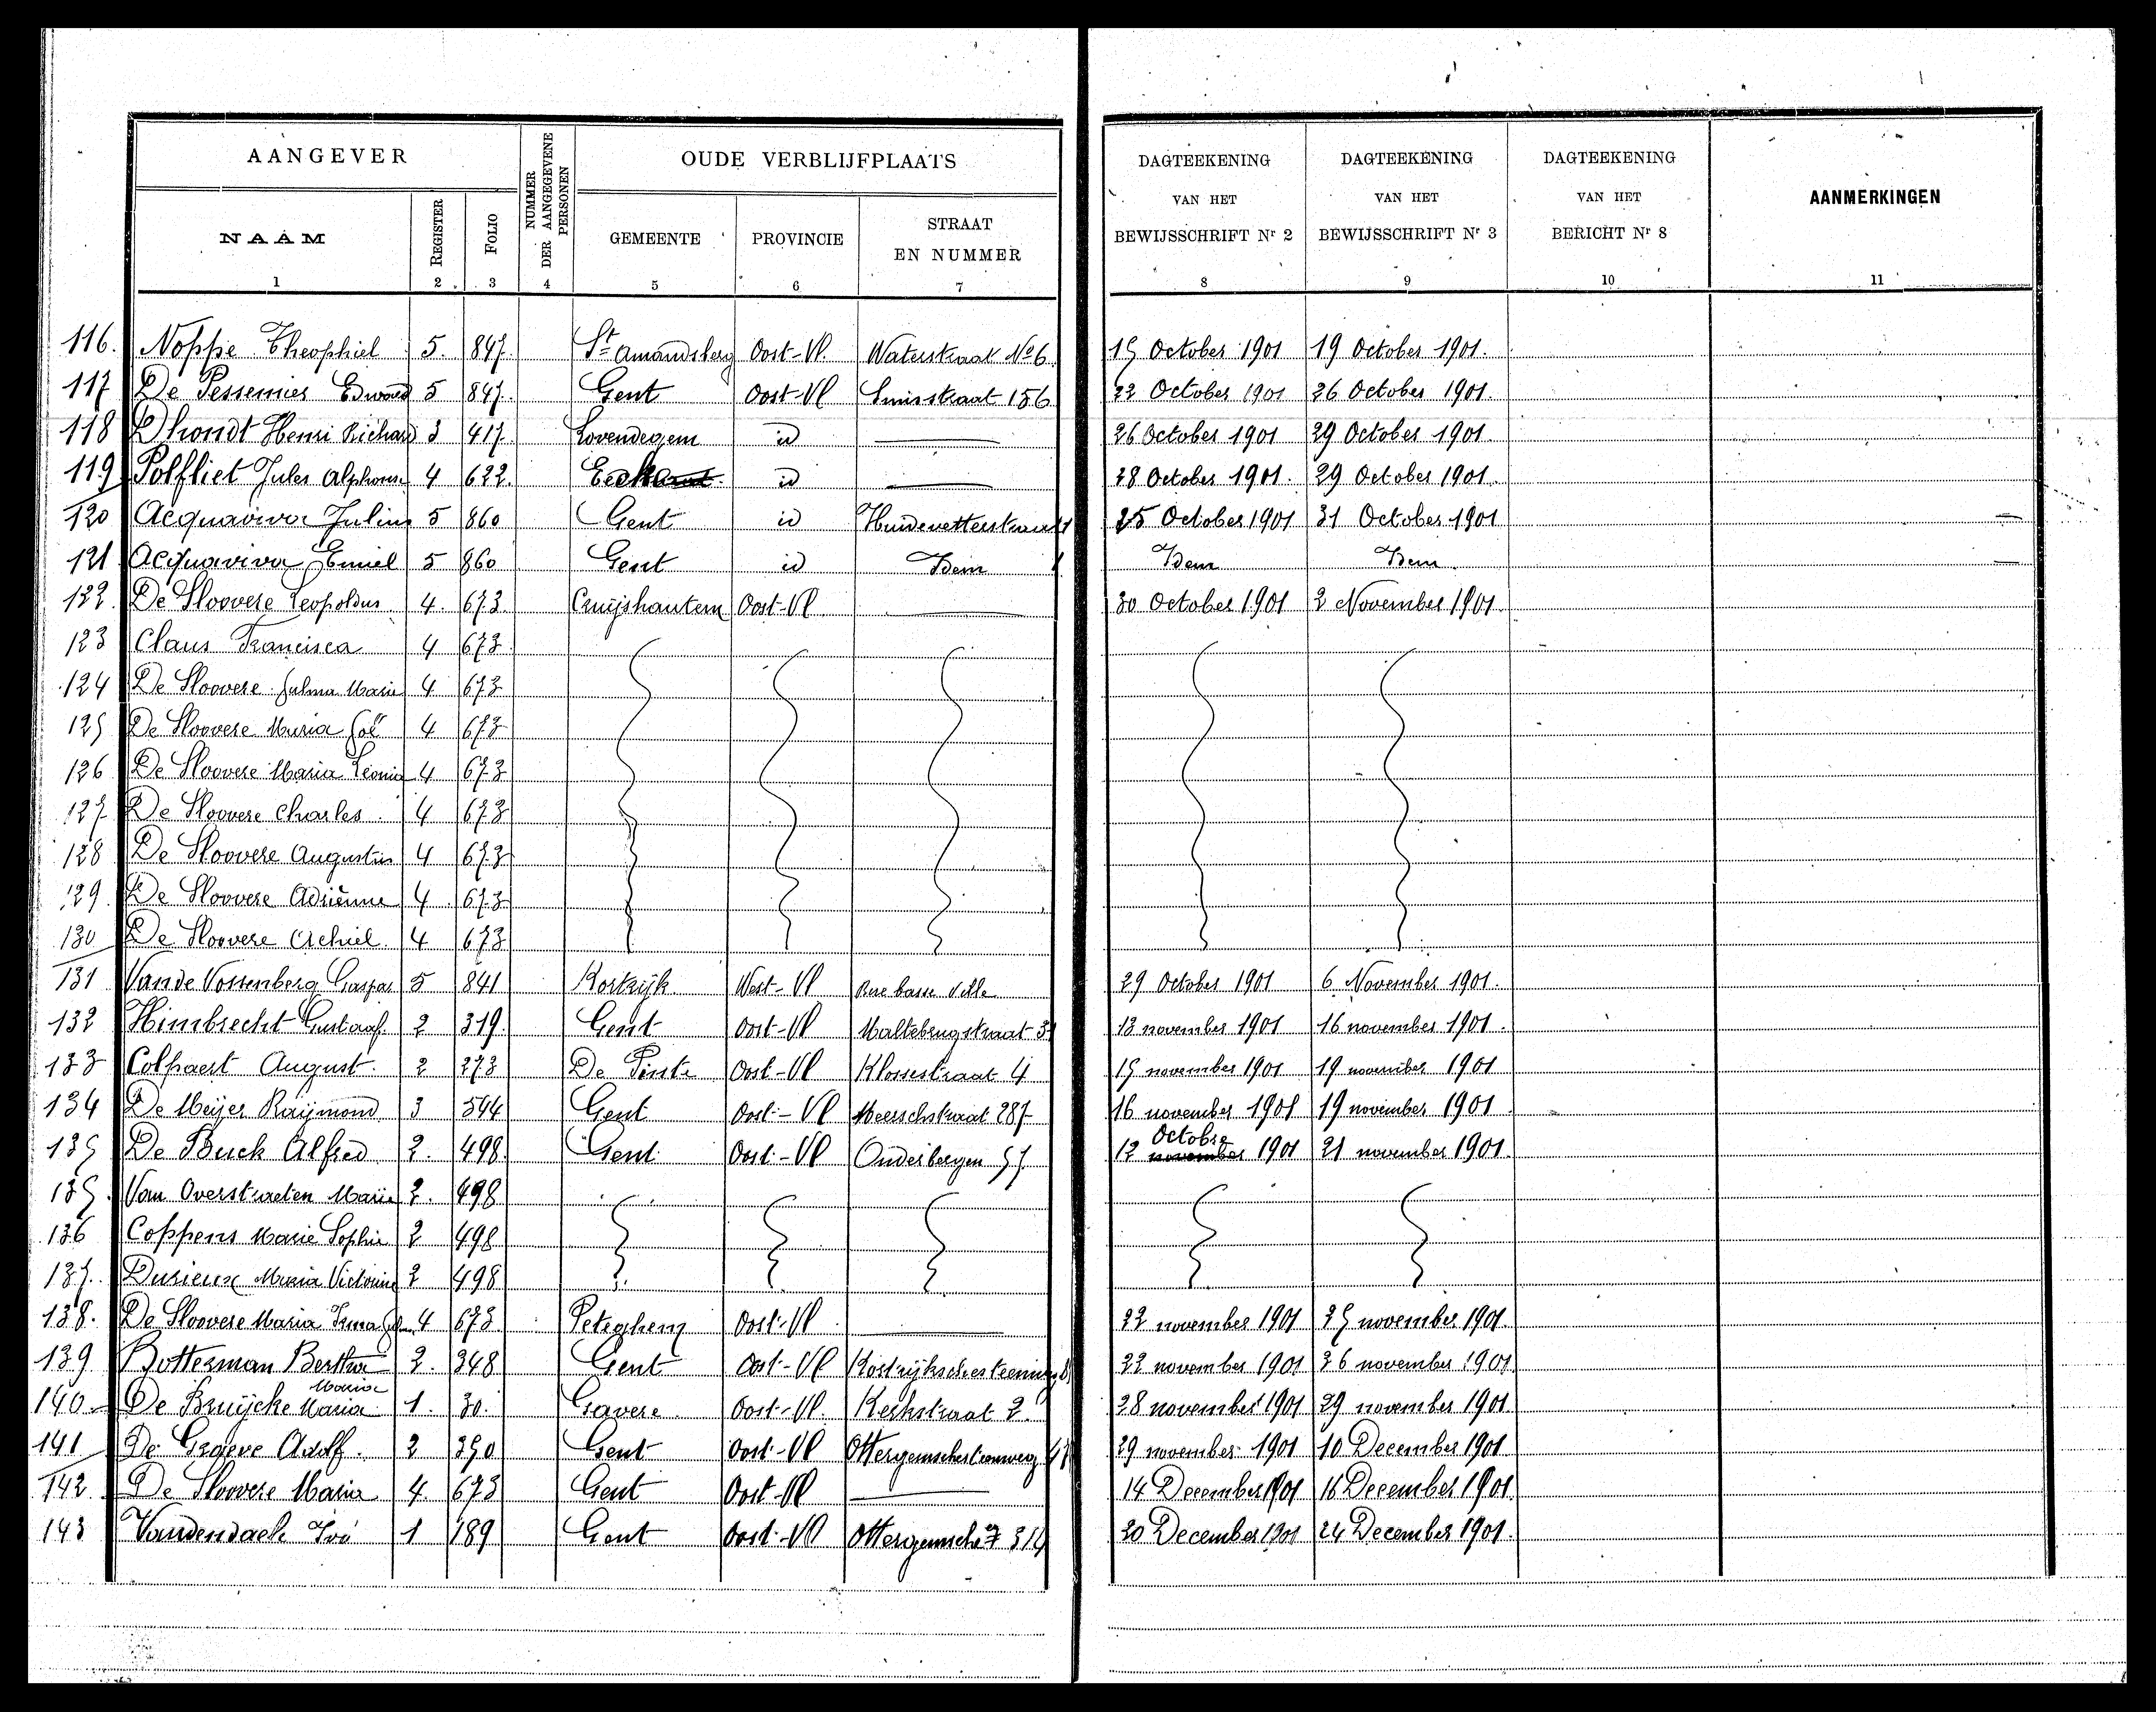 AANGEVER
NUMMER DER AANGEGEVENE PERSONEN
OUDE VERBLIJFPLAATS
DAGTEEKENING VAN HET BEWIJSSCHRIFT Nr 2
DAGTEEKENING VAN HET BEWIJSSCHRIFT Nr 3
DAGTEEKENING VAN HET BERICHT Nr 8
AANMERKINGEN
NAAM REGISTER FOLIO GEMEENTE PROVINCIE STRAAT EN NUMMER
1 2 3 4 5 6 7 8 9 10 11
116. Noppe Theophiel 5. 847. St Amandsberg Oost-Vl. Waterstraat No 6. 15 October 1901 19 October 1901.
117 De Pessemier Edward 5 847. Gent Oost-Vl 156 22 October 1901 26 October 1901.
118 Dhondt Henri Richard 3 417. Lovendegem id 26 October 1901 29 October 1901.
119 Polfliet Jules Alphonse 4 622. id 28 October 1901. 29 October 1901.
120 Acquaviva Julius 5 860 Gent id Huidevetterstraat 25 October 1901 31 October 1901
121 Acquaviva Emiel 5 860 Gent id Idem Idem Idem.
122. De Sloovere Leopoldus 4. 673. Cruijshautem Oost-Vl. 30 October 1901 2 November 1901.
123 Claus Francisca 4 673.
124 De Sloovere Marie 4 673
125 De Sloovere Maria 4 673
126 De Sloovere Maria Leonia 4 673
127 De Sloovere Charles. 4 673
128 De Sloovere Augustin 4 673
129. De Sloovere Adriènne 4 673
130 De Sloovere Achiel. 4 673
131 Van de Vossenberg Gaspar 5 841 Kortrijk West-Vl Rue basse Ville 29 October 1901 6 November 1901.
132 Himbrecht Gustaaf. 2 319. Gent Oost-Vl Maltebrugstraat 13 november 1901 16 november 1901.
133 Colpaert August. 2 273 De Pinte Oost-Vl Klossestraat 4 15 november 1901 19 november 1901
134 De Meijer Raijmond 3 544 Gent Oost-Vl Meerschstraat 287 16 november 1901 19 november 1901
135 De Buck Alfred 2. 498. Gent Oost-Vl Onderbergen 57. 12 november Octobre 1901 21 november 1901.
135. Van Overstraeten Marie 2. 498
136 Coppens Marie Sophie 2 498
137. Durieux Maria Victorine 2 498
138. De Sloovere Maria Irma 4 673. Peteghem Oost-Vl 22 november 1901 25 november 1901.
139 Botterman Bertha 2. 348 Gent Oost-Vl Kortrijkschesteenweg 22 november 1901 26 november 1901.
Maria
140 De Bruijcke Maria 1. 30. Gavere Oost-Vl. Kerkstraat 2. 28 november 1901 29 november 1901.
141 De Graeve Adolf. 2 350 Gent Oost-Vl Ottergemschesteenweg 29 november 1901 10 December 1901
142 De Sloovere Maria 4. 673 Gent Oost-Vl 14 December 1901 16 December 1901
143 Vandendaele Ivo 1 189 Gent Oost-Vl Ottergemsche 314 20 December 1901 24 December 1901.